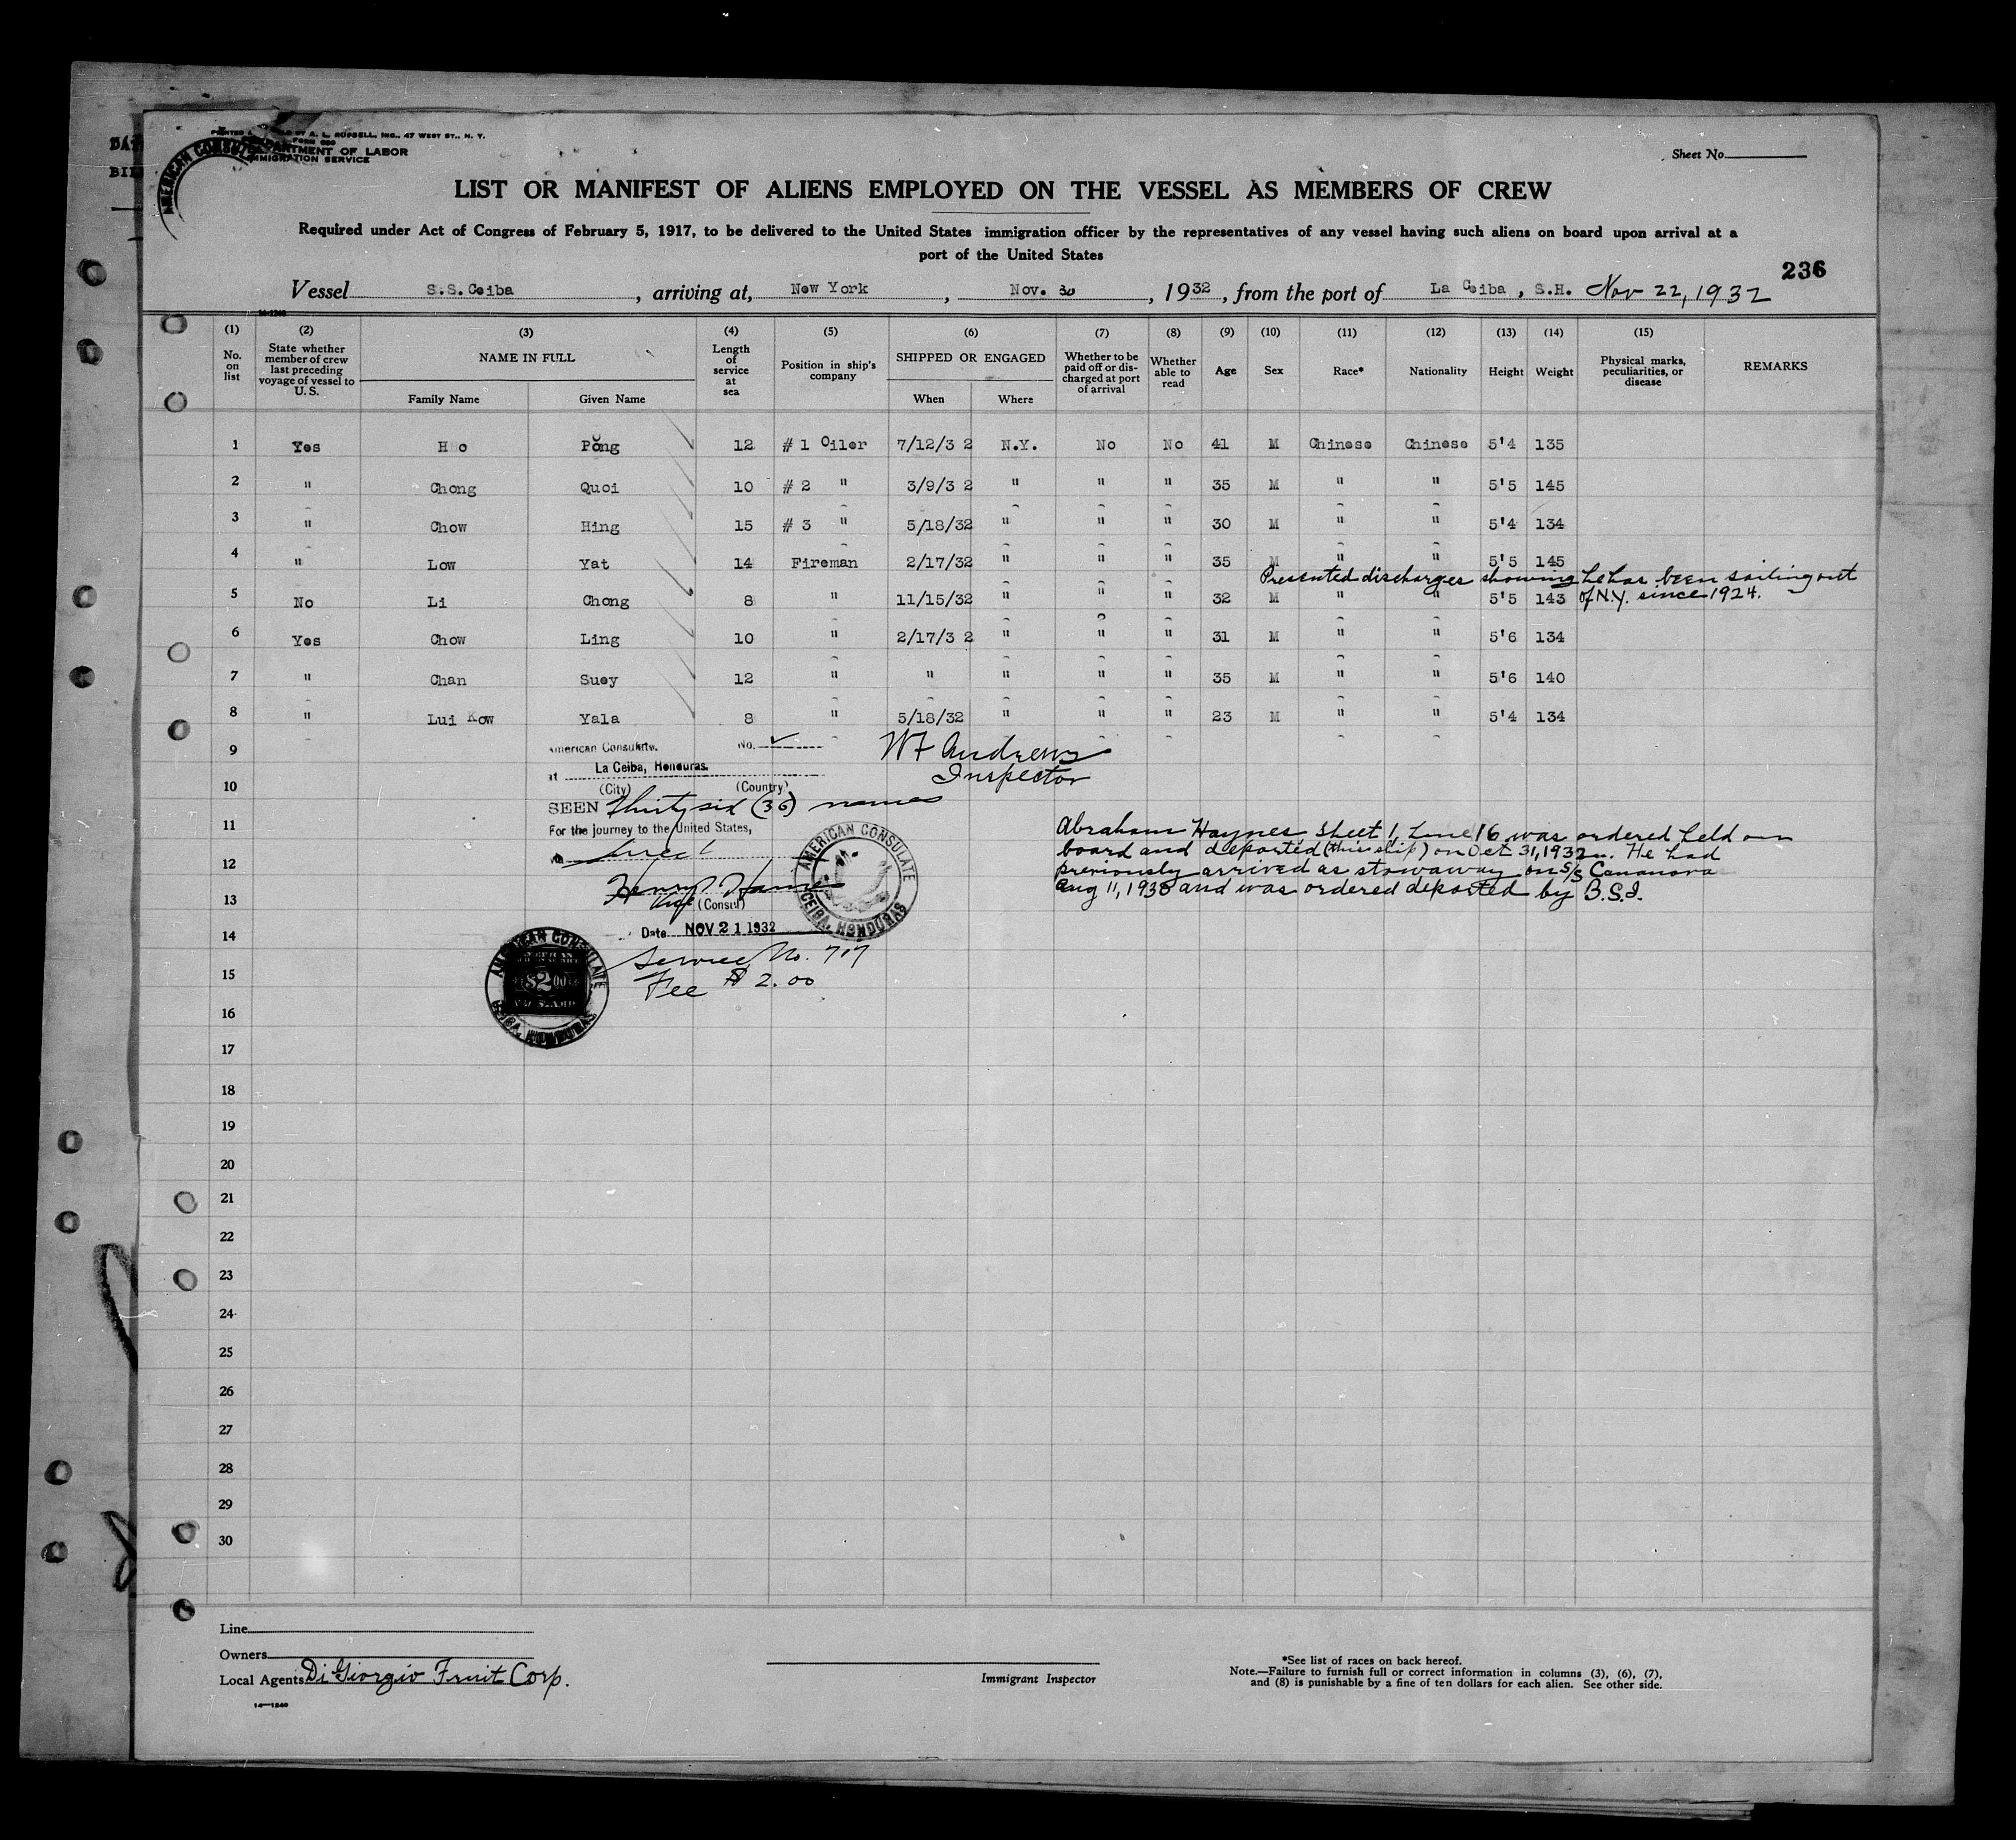 PRINTED BY A. L. RUSSELL, INC., 47 WEST ST., N. Y.
DEPARTMENT OF LABOR
IMMIGRATION SERVICE
AMERICAN CONSUL
Sheet No.
LIST OR MANIFEST OF ALIENS EMPLOYED ON THE VESSEL AS MEMBERS OF CREW
Required under Act of Congress of February 5, 1917, to be delivered to the United States immigration officer by the representatives of any vessel having such aliens on board upon arrival at a
port of the United States
236
Vessel S.S.Ceiba, arriving at, New York, Nov. 30, 1932, from the port of La Ceiba, S.H. Nov 22, 1932
(1) (2) (3) (4) (5) (6) (7) (8) (9) (10) (11) (12) (13) (14) (15)
No. on list
State whether member of crew last preceding voyage of vessel to U.S.
NAME IN FULL
Family Name Given Name
Length of service at sea
Position in ship's company
SHIPPED OR ENGAGED
When Where
Whether to be paid off or discharged at port of arrival
Whether able to read
Age Sex Race* Nationality Height Weight
Physical marks, peculiarities, or disease
REMARKS
1 Yes Ho Pong 12 # 1 Oiler 7/12/32 N.Y. No No 41 M Chinese Chinese 5'4 135
2 " Chong Quoi 10 # 2 " 3/9/32 " " " 35 M " " 5'5 145
3 " Chow Hing 15 # 3 " 5/18/32 " " " 30 M " " 5'4 134
4 " Low Yat 14 Fireman 2/17/32 " " " 35 M " " 5'5 145
Presented discharges showing he has been sailing out
5 No Li Chong 8 " 11/15/32 " " " 32 M " " 5'5 143 of N.Y. since 1924.
6 Yes Chow Ling 10 " 2/17/32 " " " 31 M " " 5'6 134
7 " Chan Suey 12 " " " " " 35 M " " 5'6 140
8 " Lui Kow Yala 8 " 5/18/32 " " " 23 M " " 5'4 134
9
10
11
12
13
14
15
16
17
18
19
20
21
22
23
24
25
26
27
28
29
30
American Consulate. No.
at La Ceiba, Honduras.
(City) (Country)
SEEN Thirty six (36) names
For the journey to the United States,
Via direct
(Consul)
Date NOV 21 1932
Service No. 717
Fee $2.00
AMERICAN CONSULATE
CEIBA, HONDURAS
AMERICAN CONSULATE
$2.00
CEIBA, HONDURAS
W F Andrews
Inspector
Abraham Haynes Sheet 1, Line 16 was ordered held on
board and deported (this ship) on Oct 31, 1932. He had
previously arrived as stowaway on S/S Cananova
Aug 11, 1930 and was ordered deported by B.S.I.
Line
Owners
Local Agents DiGiorgio Fruit Corp.
14—1240
Immigrant Inspector
*See list of races on back hereof.
Note.—Failure to furnish full or correct information in columns (3), (6), (7),
and (8) is punishable by a fine of ten dollars for each alien. See other side.